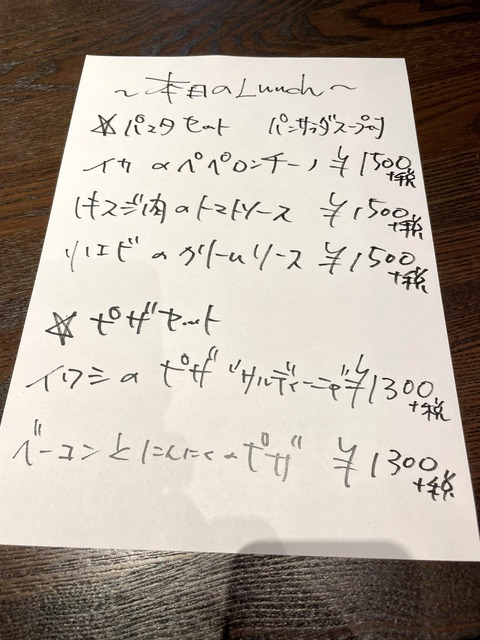 ~本日のLunch~
☆パスタセット パンサラダスープ付
イカのペペロンチーノ ¥1500+税
牛スジ肉のトマトソース ¥1500+税
小エビのクリームソース ¥1500+税
☆ピザセット
イワシのピザ"サルディーニャ" ¥1300+税
ベーコンとにんにくのピザ ¥1300+税